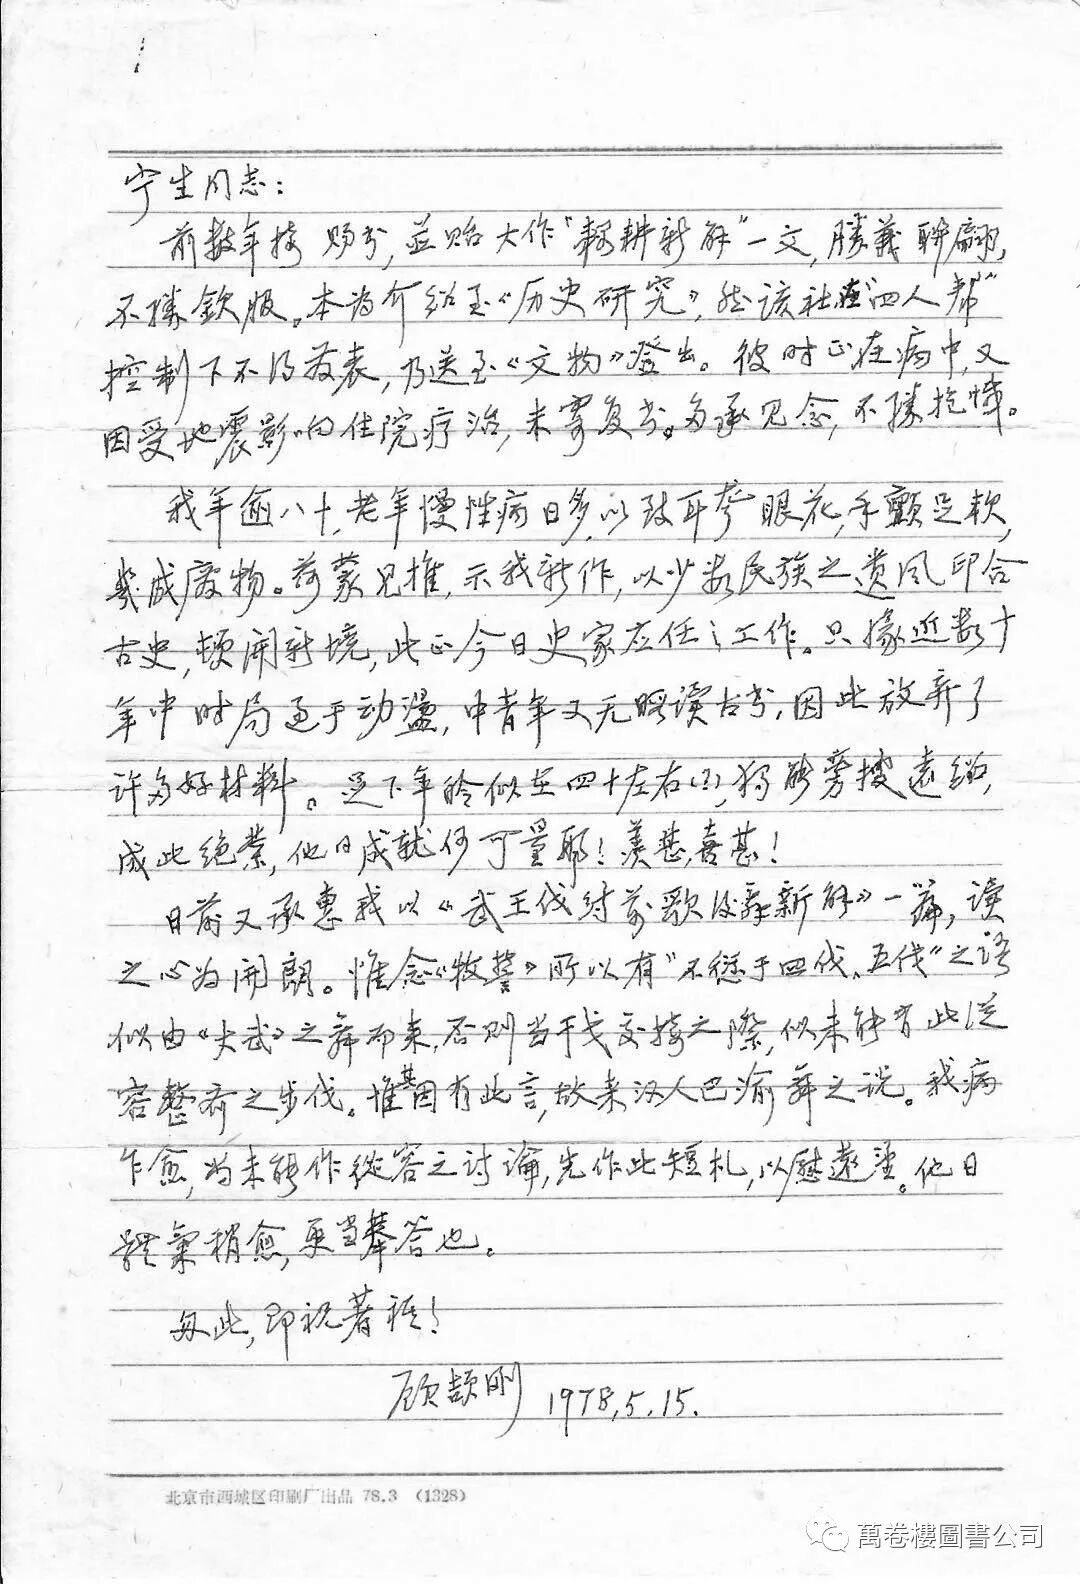 宁生同志：
前数年接 赐书，並贻大作“耦耕新解”一文，勝義聯翩，
不勝欽服。本为介绍至《历史研究》，然该社在“四人帮”
控制下不得发表，乃送至《文物》登出。彼时正在病中，又
因受地震影响住院疗治，未寄复书。多承见念，不勝抱愧。
我年逾八十，老年慢性病日多，以致耳聋眼花，手顫足軟，
幾成废物。荷蒙见推，示我新作，以少数民族之遗风印合
古史，頓開新境，此正今日史家应任之工作。只缘近数十
年中时局过于动盪，中青年又无暇读古书，因此放弃了
许多好材料。足下年龄似在四十左右(?)，独能旁搜远绍，
成此绝業，他日成就何可量耶！羡甚，喜甚！
日前又承惠我以《武王伐纣前歌後舞新解》一篇，读
之心为開朗。惟念《牧誓》所以有“不愆于四伐、五伐”之语
似由《大武》之舞而来，否则当干戈交接之際，似未能有此从
容整齐之步伐。惟其因有此言，故来汉人巴渝舞之说。我病
乍愈，尚未能作從容之讨論，先作此短札，以慰遠望。他日
體氣稍愈，更当奉答也。
匆此，即祝著祺！
顾颉刚 1978.5.15.
北京市西城区印刷厂出品 78.3 (1328)
萬卷樓圖書公司